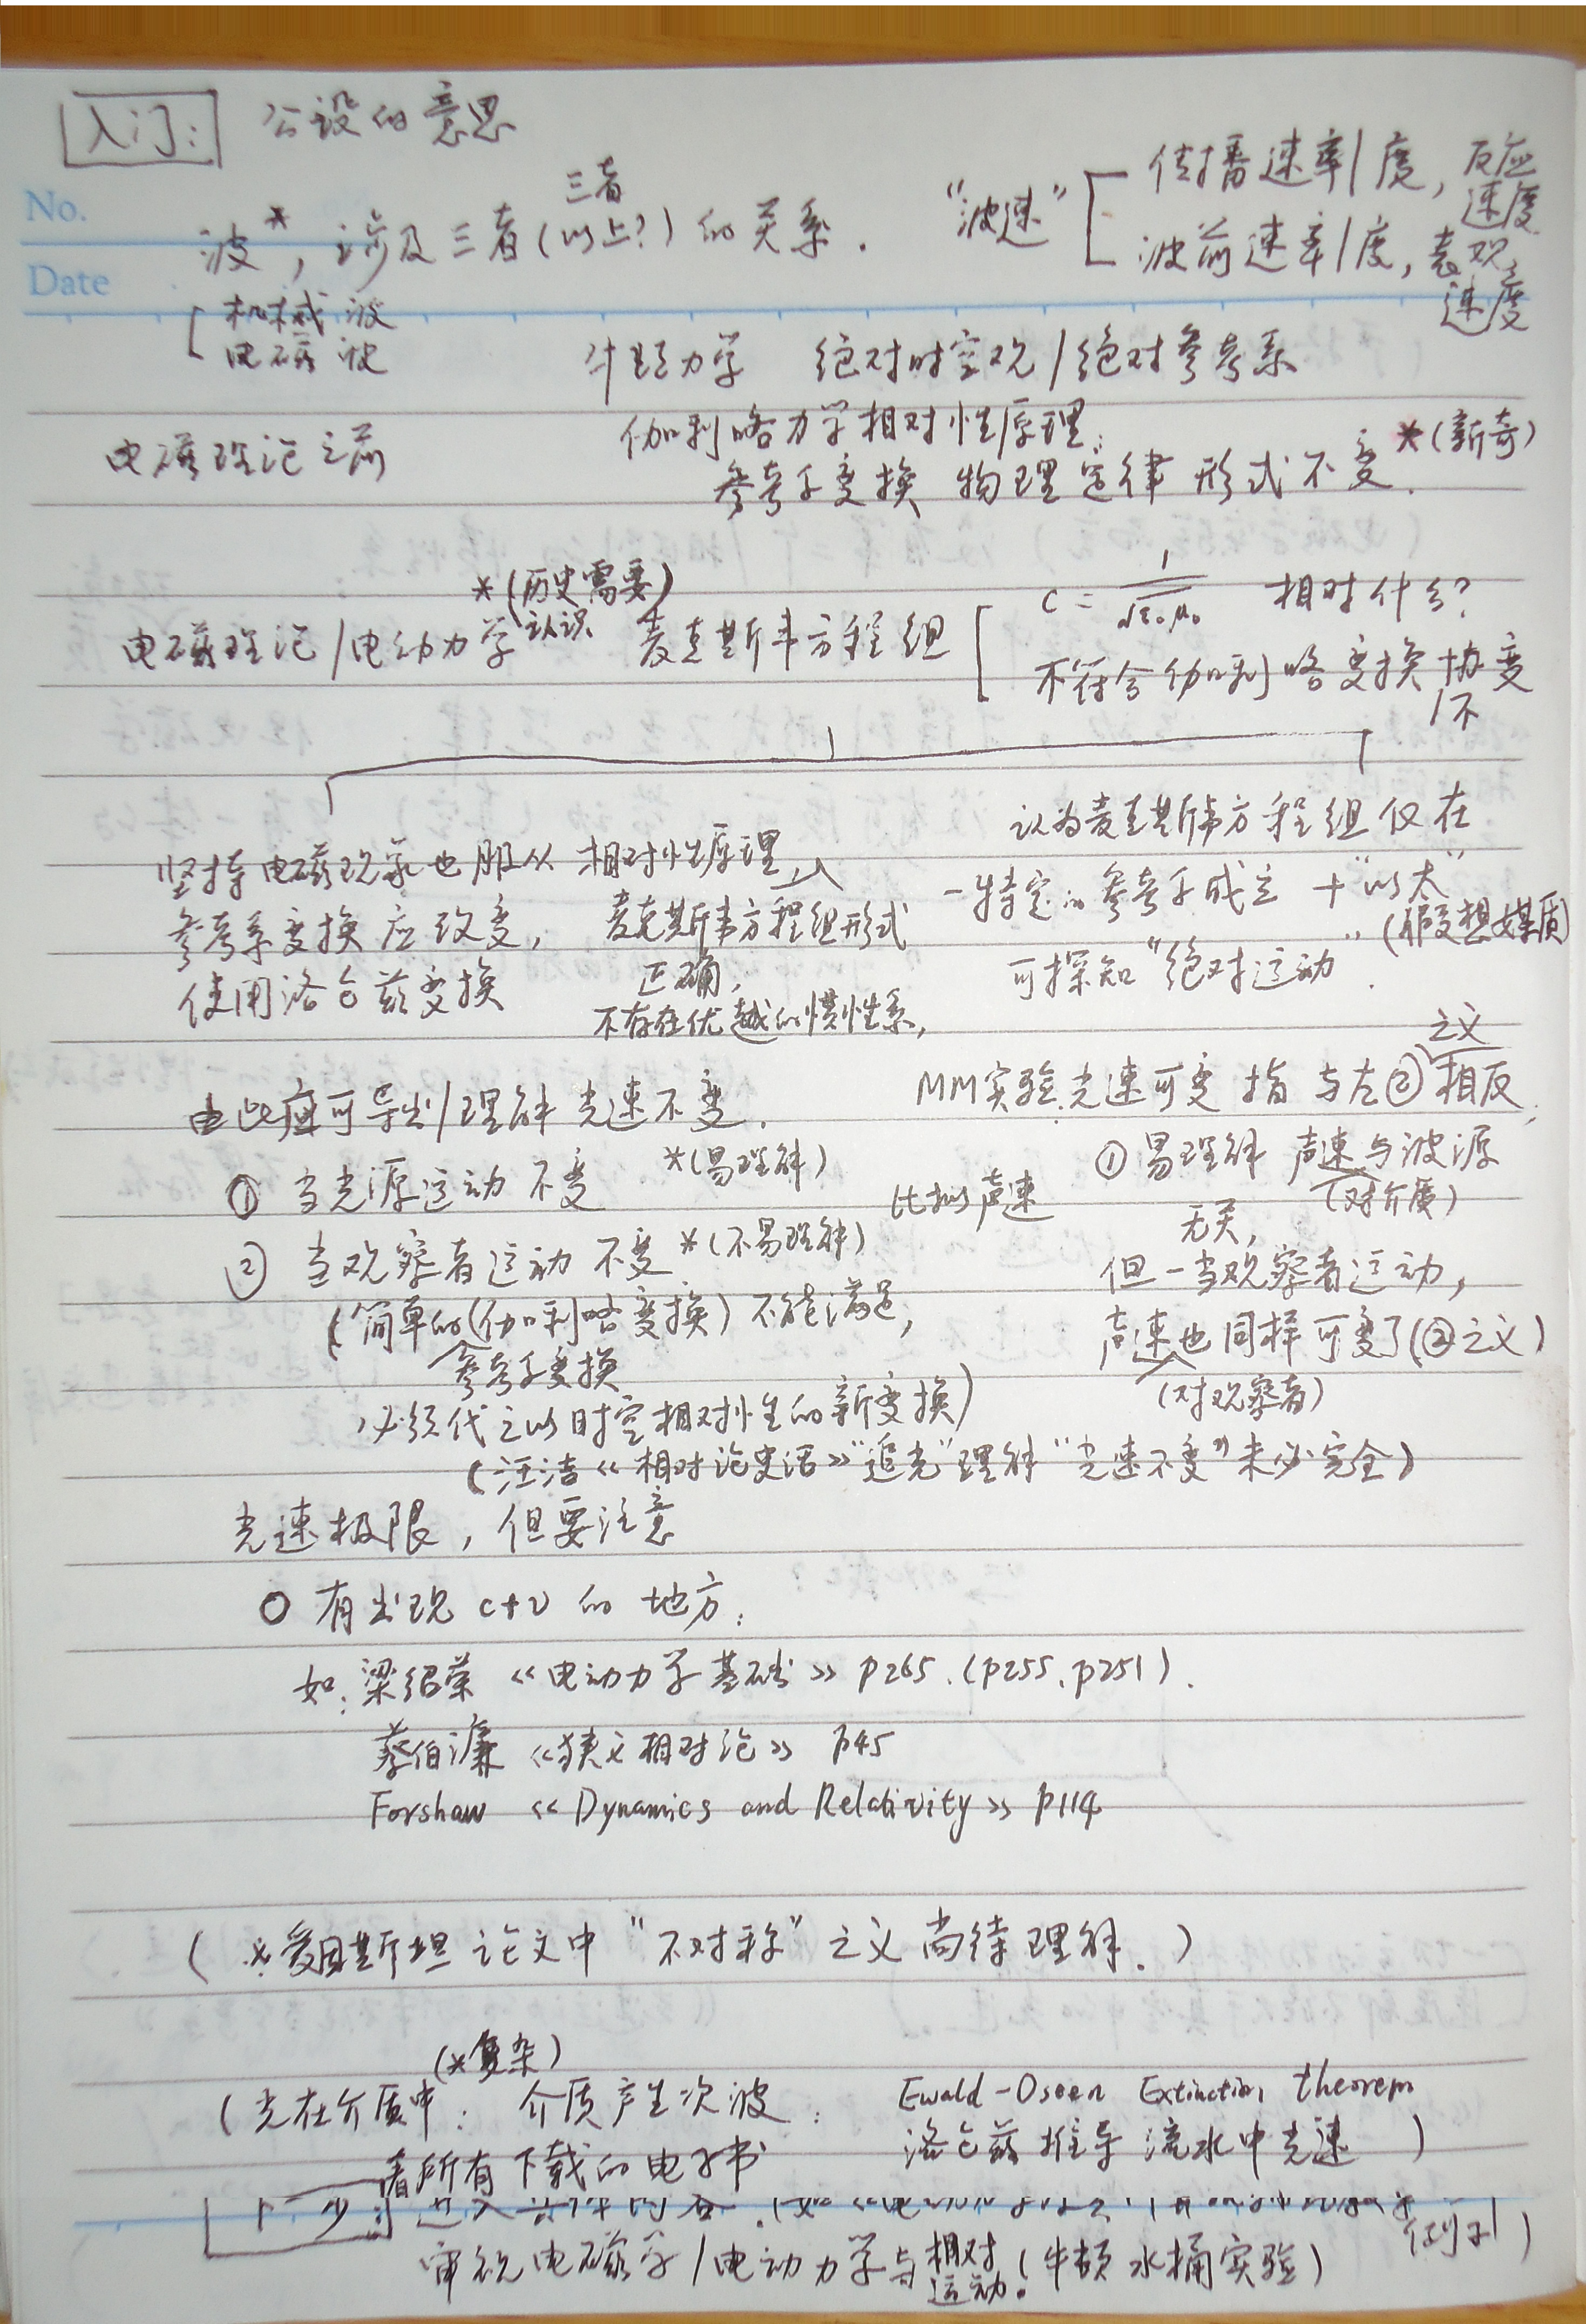 入门: 公设的意思
No.
Date
波*, 涉及三者(以上?)的关系.
三者
"波速"
传播速率/度, 反应速度
波前速率/度, 表观速度
机械波
电磁波
牛顿力学 绝对时空观/绝对参考系
电磁理论之前
伽利略力学相对性原理:
参考系变换 物理定律 形式不变. *(新奇)
*(历史需要)
认识
电磁理论/电动力学 麦克斯韦方程组
c = 1/√ε₀μ₀ 相对什么?
不符合伽利略变换协变
/不
坚持电磁现象也服从相对性原理
参考系变换应改变,
使用洛仑兹变换
麦克斯韦方程组形式
正确,
不存在优越的惯性系,
认为麦克斯韦方程组仅在
一特定的参考系成立 + "以太"
(假想媒质)
可探知"绝对运动".
由此应可导出/理解 光速不变.
MM实验 光速可变 指 与左②相反,
之义
① 当光源运动 不变 *(易理解)
② 当观察者运动 不变 *(不易理解)
(简单的(伽利略变换)不能满足,
参考系变换
必须代之以时空相对性的新变换)
比拟声速
① 易理解 声速与波源
(对介质)
无关,
但一当观察者运动,
声速也同样可变了(②之义)
(对观察者)
(汪洁《相对论史话》"追光"理解"光速不变"未必完全)
光速极限, 但要注意
○ 有出现 c+v 的 地方:
如: 梁绍荣《电动力学基础》 p265. (p255、p251).
蔡伯濂《狭义相对论》 p45
Forshaw 《Dynamics and Relativity》 p114
(*爱因斯坦 论文中 "不对称" 之义 尚待理解.)
(*复杂)
(光在介质中: 介质产生次波: Ewald-Oseen Extinction theorem
洛仑兹推导 流水中光速 )
看所有下载的电子书
下一步: 进入具体内容.
例子)
审视电磁学/电动力学与相对运动! (牛顿水桶实验)